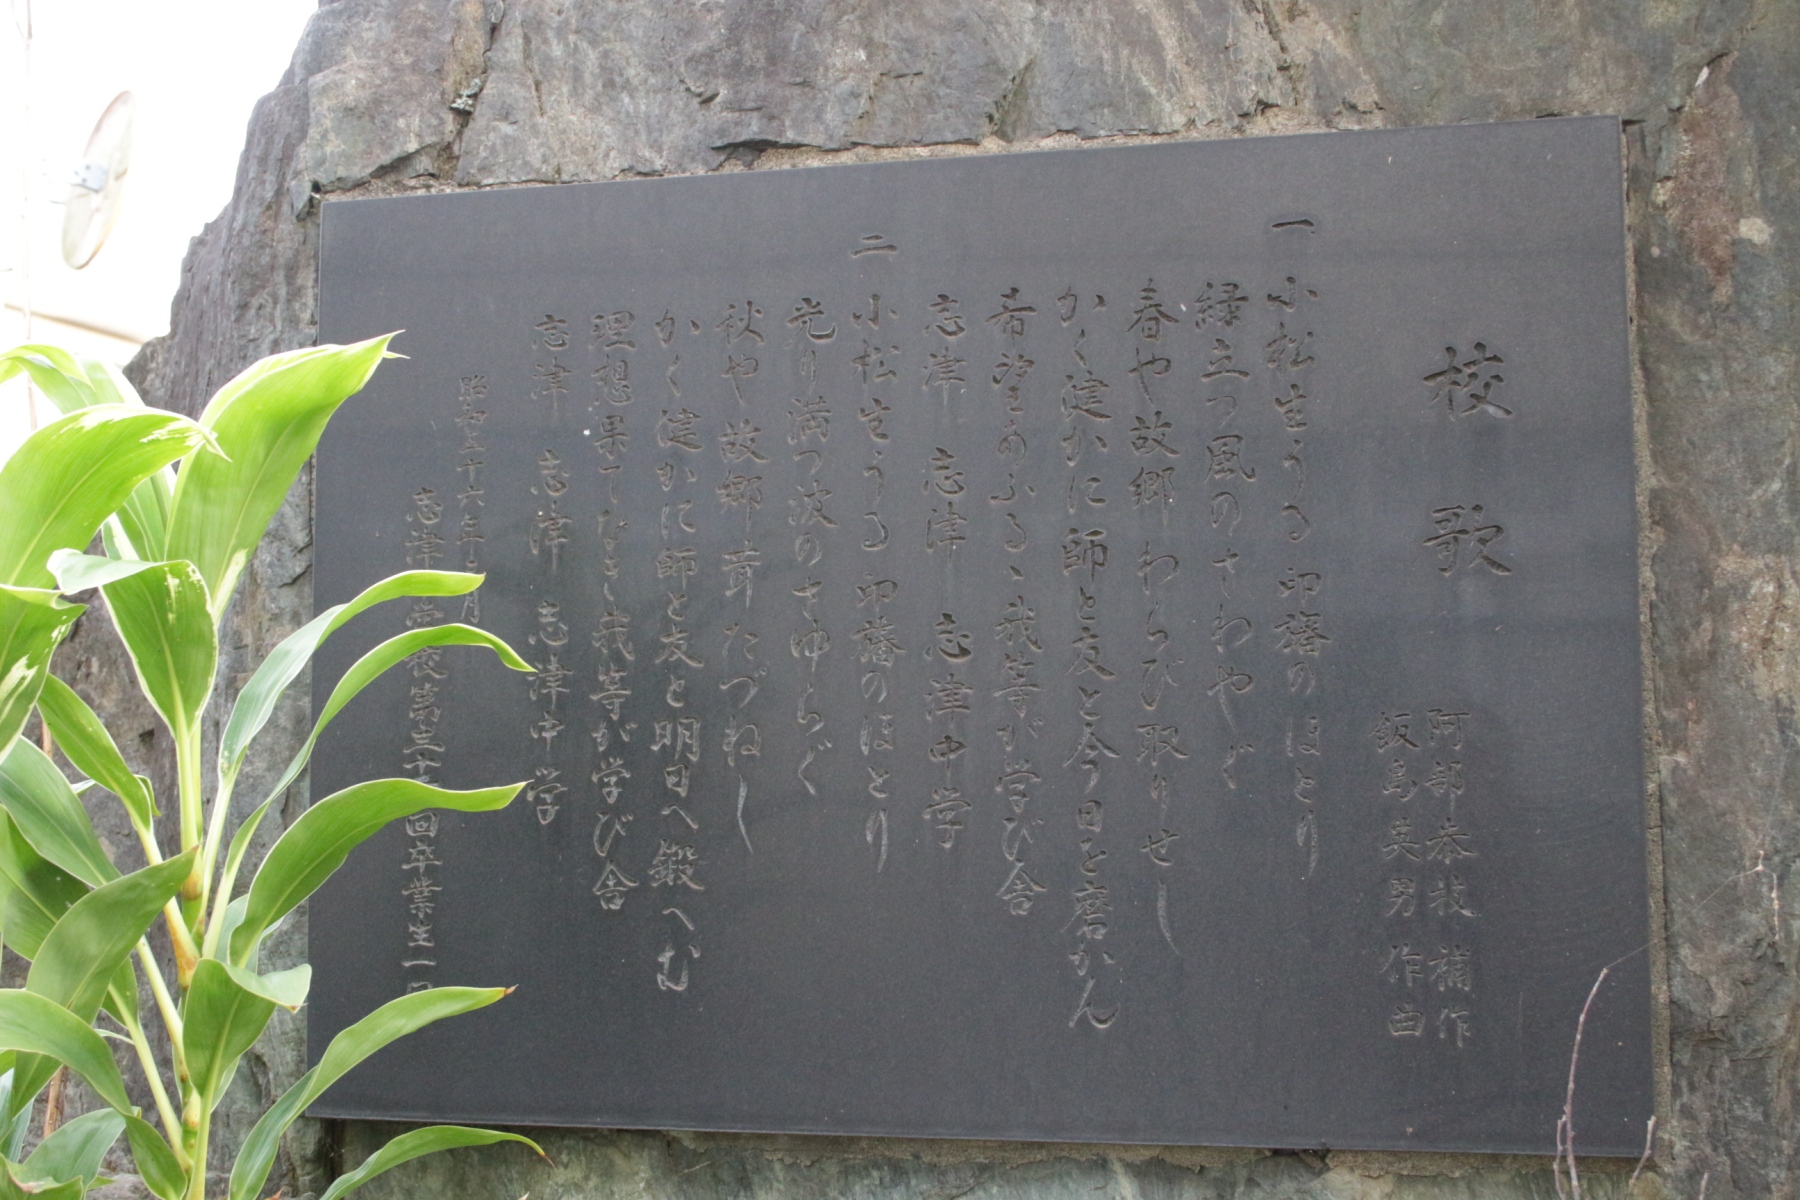 校歌
阿部恭牧補作
飯島英男作曲
一
小松生うる印旛のほとり
緑立つ風のさわやぐ
春や故郷わらび取りせし
かく健かに師と友と今日を磨かん
希望あふるゝ我等が学び舎
志津 志津 志津中学
二
小松生うる印旛のほとり
光り満つ波のさゆらぐ
秋や故郷茸たづねし
かく健かに師と友と明日へ鍛へむ
理想果てなき我等が学び舎
志津 志津 志津中学
昭和五十六年 月
志津 学校第三十 回卒業生一同